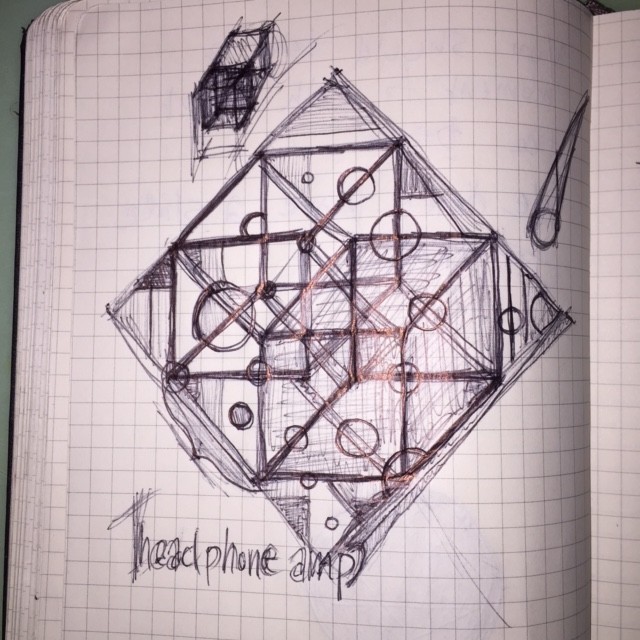 headphone amp